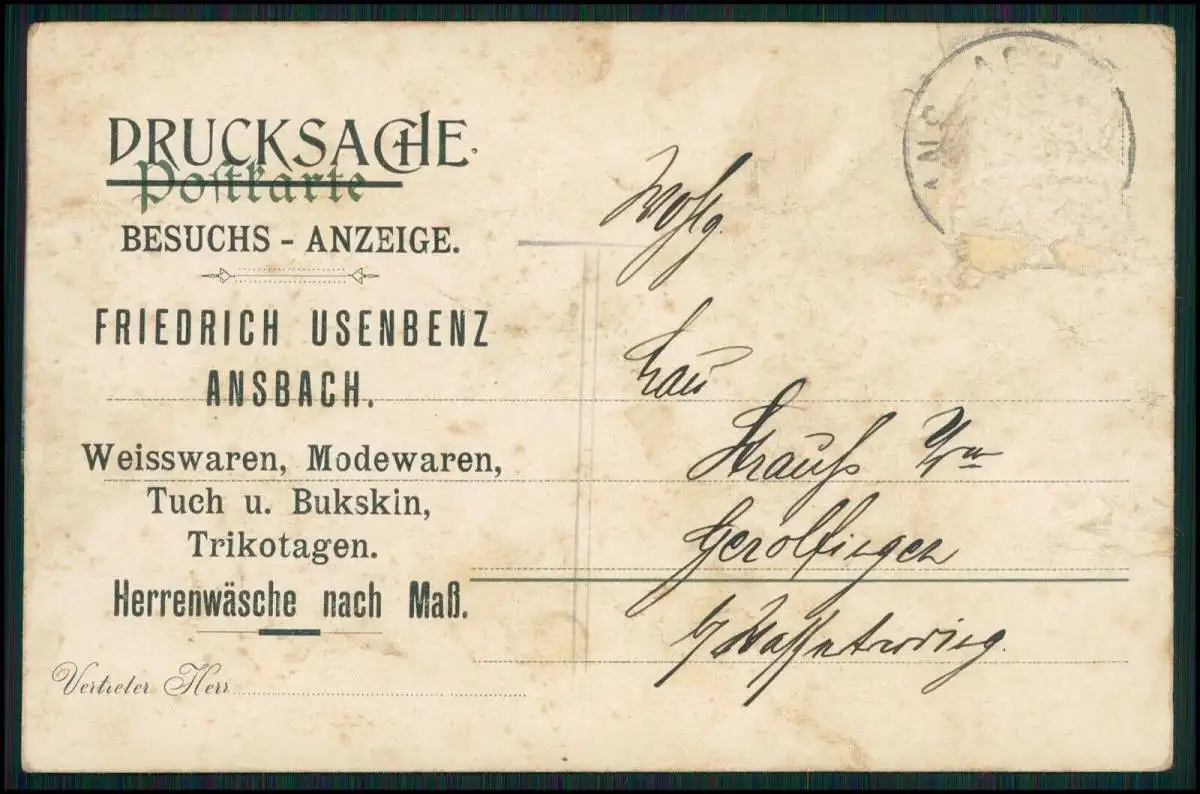 DRUCKSACHE.
Postkarte
BESUCHS - ANZEIGE.
FRIEDRICH USENBENZ
ANSBACH.
Weisswaren, Modewaren,
Tuch u. Bukskin,
Trikotagen.
Herrenwäsche nach Maß.
Vertreter Herr
ANSBACH
Wohlg.
Frau
Strauß Ww
Gerolfingen
b/ Wassertrüding.